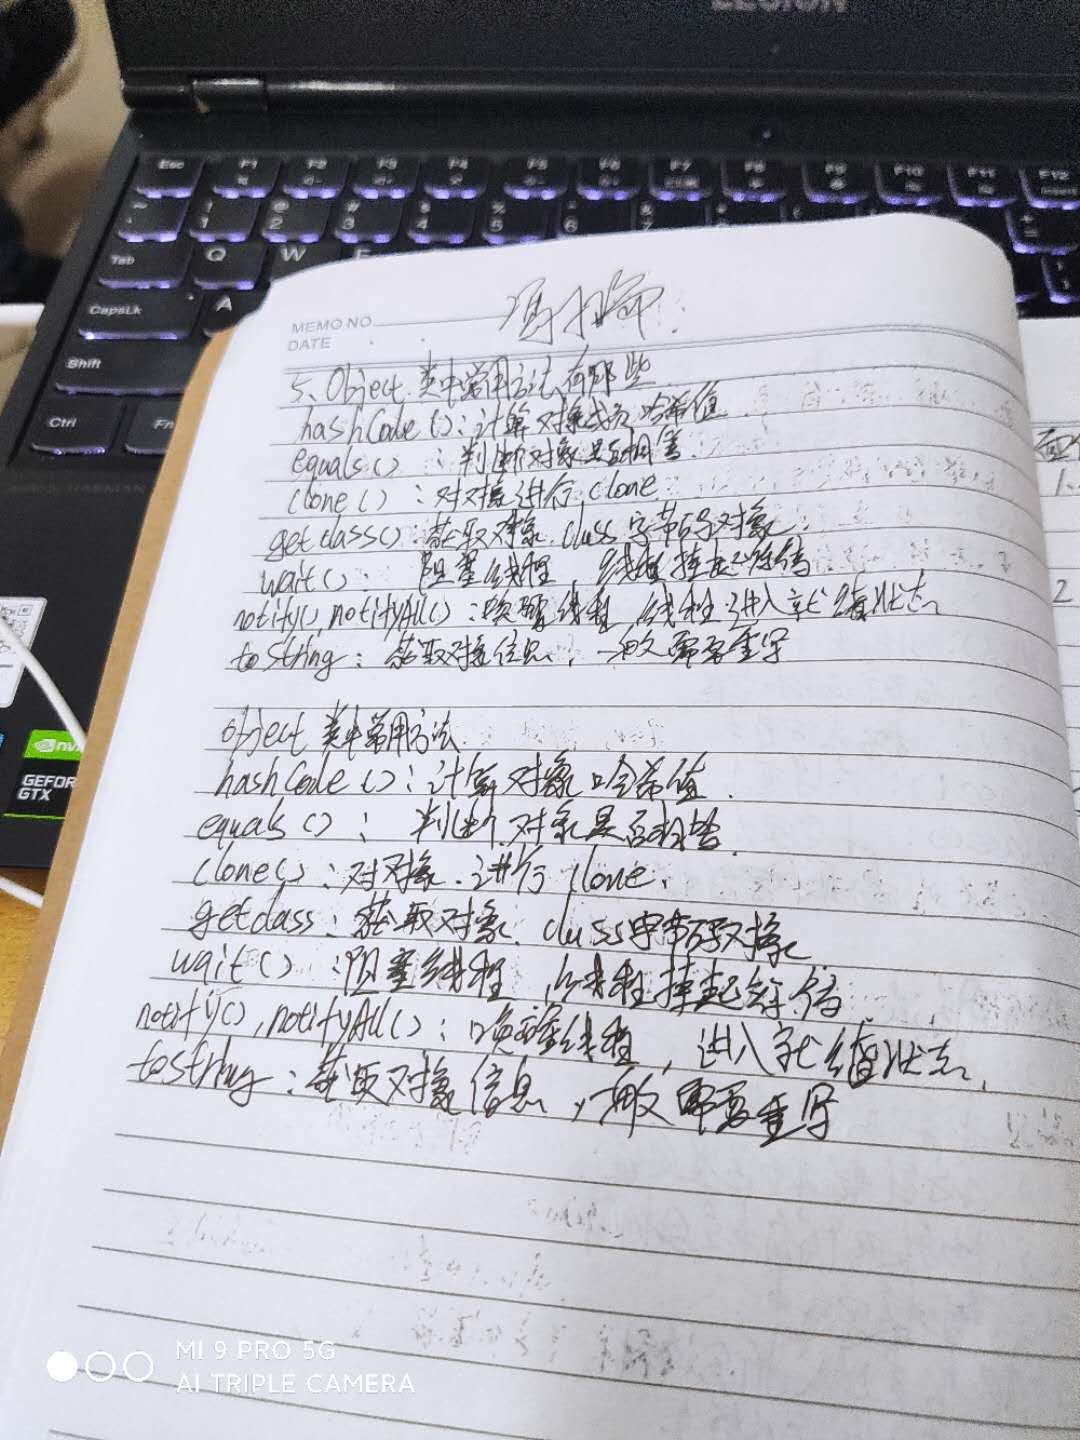 LEGION
Esc F1 F2 F3 F4 F5 F6 F7 F8 F9 F10 F11 F12
Tab Q W E
CapsLk A
Shift
Ctrl Fn
MEMO NO
DATE
5、Object 类中常用方法有哪些
hashCode()：计算对象 哈希值
equals()：判断对象是否相等
clone()：对对象进行clone
getclass()：获取对象.class字节码对象
wait()：阻塞线程，线程挂起
notify(),notifyAll()：唤醒线程，线程进入就绪状态
toString：获取对象信息，一般需要重写
object 类中常用方法
hashCode()：计算对象哈希值.
equals()：判断对象是否相等
clone()：对对象.进行clone.
getclass：获取对象.class字节码对象
wait()：阻塞线程，线程挂起
notify(),notifyAll()：唤醒线程，进入就绪状态.
toString：获取对象信息，一般需要重写
GEFOR
GTX
MI 9 PRO 5G
AI TRIPLE CAMERA